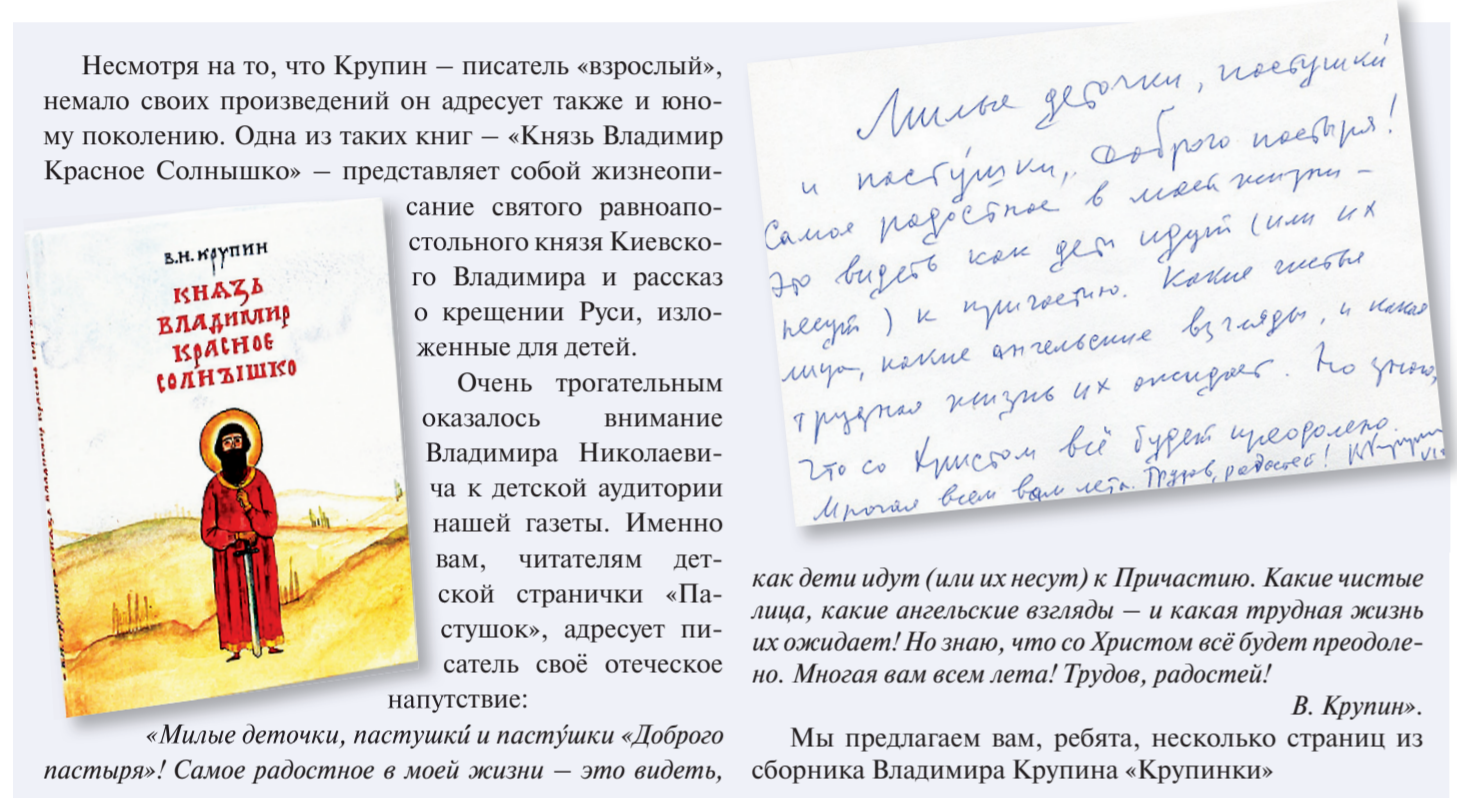 Несмотря на то, что Крупин – писатель «взрослый»,
немало своих произведений он адресует также и юно-
му поколению. Одна из таких книг – «Князь Владимир
Красное Солнышко» – представляет собой жизнеопи-
сание святого равноапо-
стольного князя Киевско-
го Владимира и рассказ
о крещении Руси, изло-
женные для детей.
Очень трогательным
оказалось внимание
Владимира Николаеви-
ча к детской аудитории
нашей газеты. Именно
вам, читателям дет-
ской странички «Па-
стушок», адресует пи-
сатель своё отеческое
напутствие:
«Милые деточки, пастушки́ и пасту́шки «Доброго
пастыря»! Самое радостное в моей жизни – это видеть,
В.Н. КРУПИН
КНЯЗЬ
ВЛАДИМИР
КРАСНОЕ
СОЛНЫШКО
Милые деточки, пастушки́
и пасту́шки, Доброго пастыря!
Самое радостное в моей жизни –
Это видеть как дети идут (или их
несут) к причастию. Какие чистые
лица, какие ангельские взгляды, и какая
трудная жизнь их ожидает. Но знаю,
что со Христом всё будет преодолено.
Многая всем вам лета. Трудов, радостей! ВКрупин
как дети идут (или их несут) к Причастию. Какие чистые
лица, какие ангельские взгляды – и какая трудная жизнь
их ожидает! Но знаю, что со Христом всё будет преодоле-
но. Многая вам всем лета! Трудов, радостей!
В. Крупин».
Мы предлагаем вам, ребята, несколько страниц из
сборника Владимира Крупина «Крупинки»